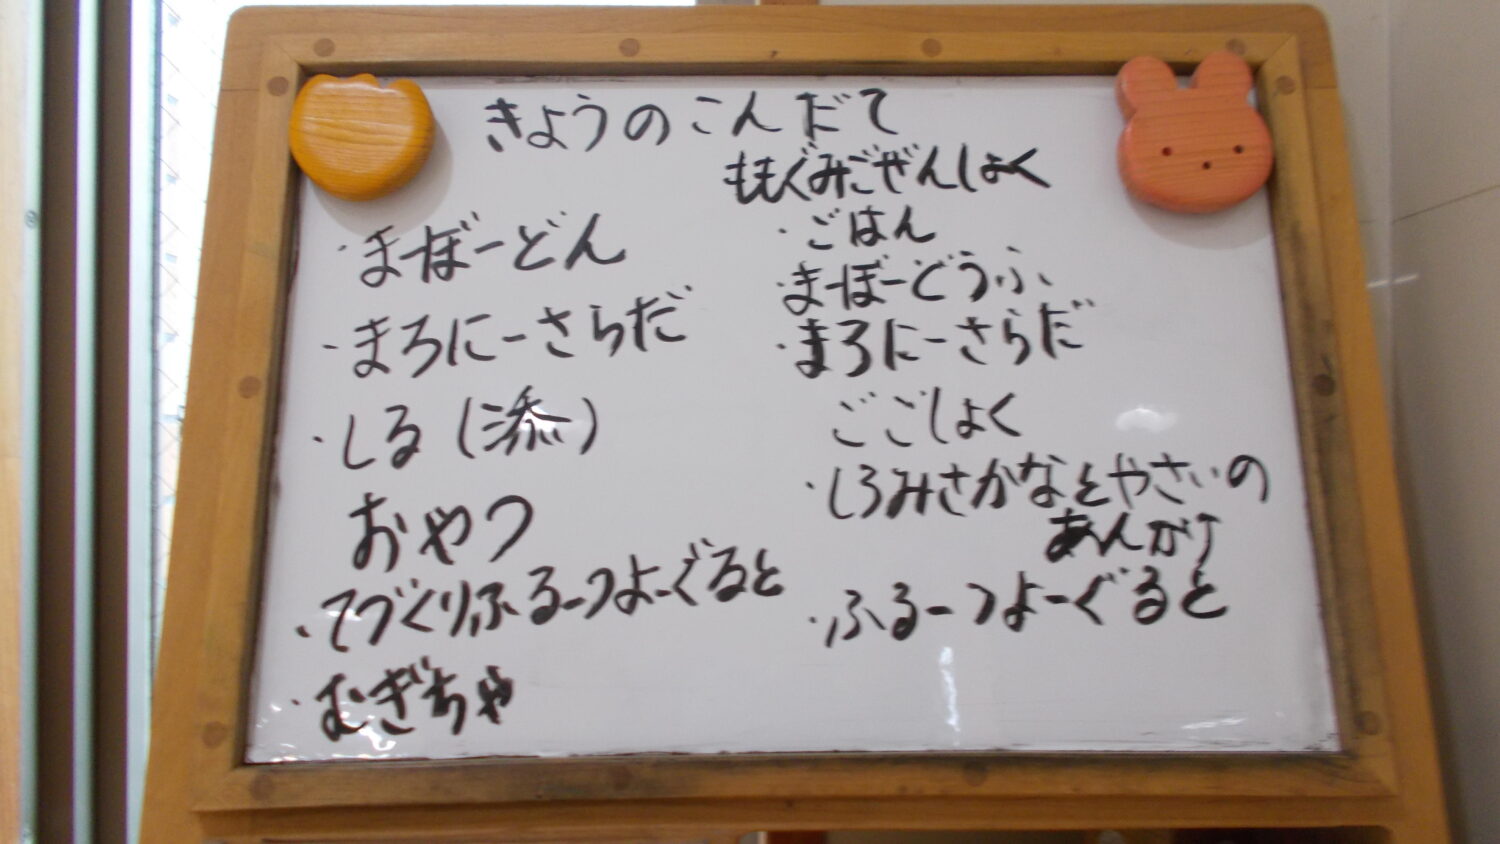 きょうのこんだて
・まーぼーどん
・まろにーさらだ
・しる(添)
おやつ
・てづくりふるーつよーぐると
・むぎちゃ
ももぐみごぜんしょく
・ごはん
・まーぼーどうふ
・まろにーさらだ
ごごしょく
・しろみさかなとやさいの
あんかけ
・ふるーつよーぐると